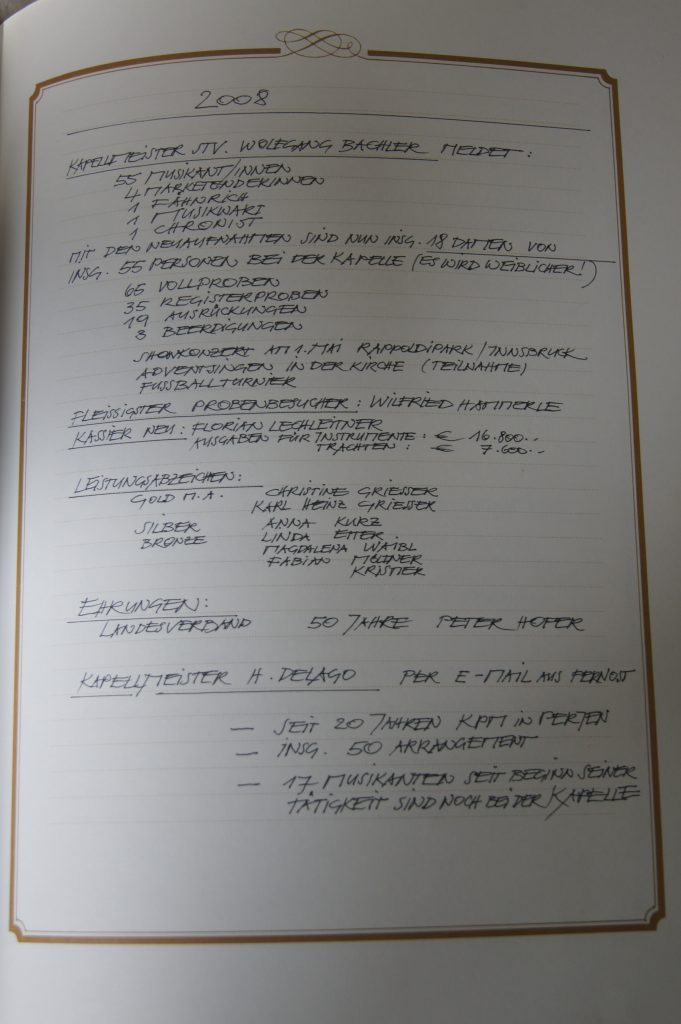 2008
KAPELLMEISTER STV. WOLFGANG BACHLER MELDET:
55 MUSIKANT/INNEN
4 MARKETENDERINNEN
1 FÄHNRICH
1 MUSIKWART
1 CHRONIST
MIT DEN NEUAUFNAHMEN SIND NUN INSG. 18 DAMEN VON
INSG. 55 PERSONEN BEI DER KAPELLE (ES WIRD WEIBLICHER!)
65 VOLLPROBEN
35 REGISTERPROBEN
19 AUSRÜCKUNGEN
3 BEERDIGUNGEN
SHOWKONZERT AM 1. MAI RAPPOLDIPARK/INNSBRUCK
ADVENTSINGEN IN DER KIRCHE (TEILNAHME)
FUSSBALLTURNIER
FLEISSIGSTER PROBENBESUCHER: WILFRIED HAMMERLE
KASSIER NEU: FLORIAN LECHLEITNER
AUSGABEN FÜR INSTRUMENTE: € 16.800.--
TRACHTEN: € 7.600.--
LEISTUNGSABZEICHEN:
GOLD M.A. CHRISTINE GRIESSER
KARL HEINZ GRIESSER
SILBER ANNA KURZ
BRONZE LINDA ETTER
MAGDALENA WAIBL
FABIAN
EHRUNGEN:
LANDESVERBAND 50 JAHRE PETER HOFER
KAPELLMEISTER H. DELAGO PER E-MAIL AUS FERNOST
— SEIT 20 JAHREN KPM IN PERJEN
— INSG. 50 ARRANGEMENT
— 17 MUSIKANTEN SEIT BEGINN SEINER
TÄTIGKEIT SIND NOCH BEI DER KAPELLE